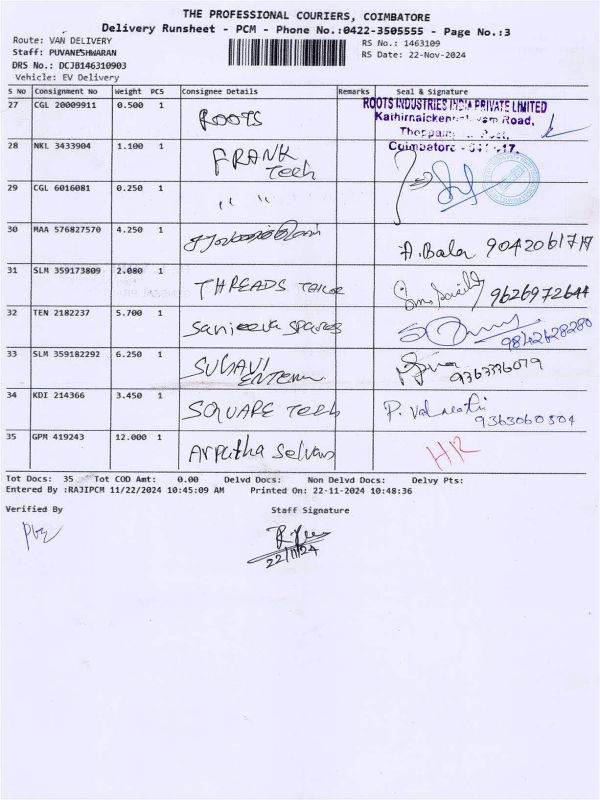 THE PROFESSIONAL COURIERS, COIMBATORE
Delivery Runsheet - PCM - Phone No.:0422-3505555 - Page No.:3
Route: VAN DELIVERY RS No.: 1463109
Staff: PUVANESHWARAN RS Date: 22-Nov-2024
DRS No.: DCJB146310903
Vehicle: EV Delivery
S No Consignment No Weight PCS Consignee Details Remarks Seal & Signature
27 CGL 20009911 0.500 1 ROOTS ROOTS INDUSTRIES INDIA PRIVATE LIMITED
Road,
28 NKL 3433904 1.100 1 FRANK Tech
Coimbatore
29 CGL 6016081 0.250 1 " "
30 MAA 576827570 4.250 1 A. Bala 9042061717
31 SLM 359173809 2.080 1 THREADS TAILOR 9626972644
32 TEN 2182237 5.700 1 Sanjeeva Spares 9842628280
33 SLM 359182292 6.250 1 SUHAVI 9363336079
34 KDI 214366 3.450 1 SQUARE Tech P. Valarathi 9363060504
35 GPM 419243 12.000 1 Arputha Selvan HR
Tot Docs: 35 Tot COD Amt: 0.00 Delvd Docs: Non Delvd Docs: Delvy Pts:
Entered By :RAJIPCM 11/22/2024 10:45:09 AM Printed On: 22-11-2024 10:48:36
Verified By Staff Signature
22/11/24